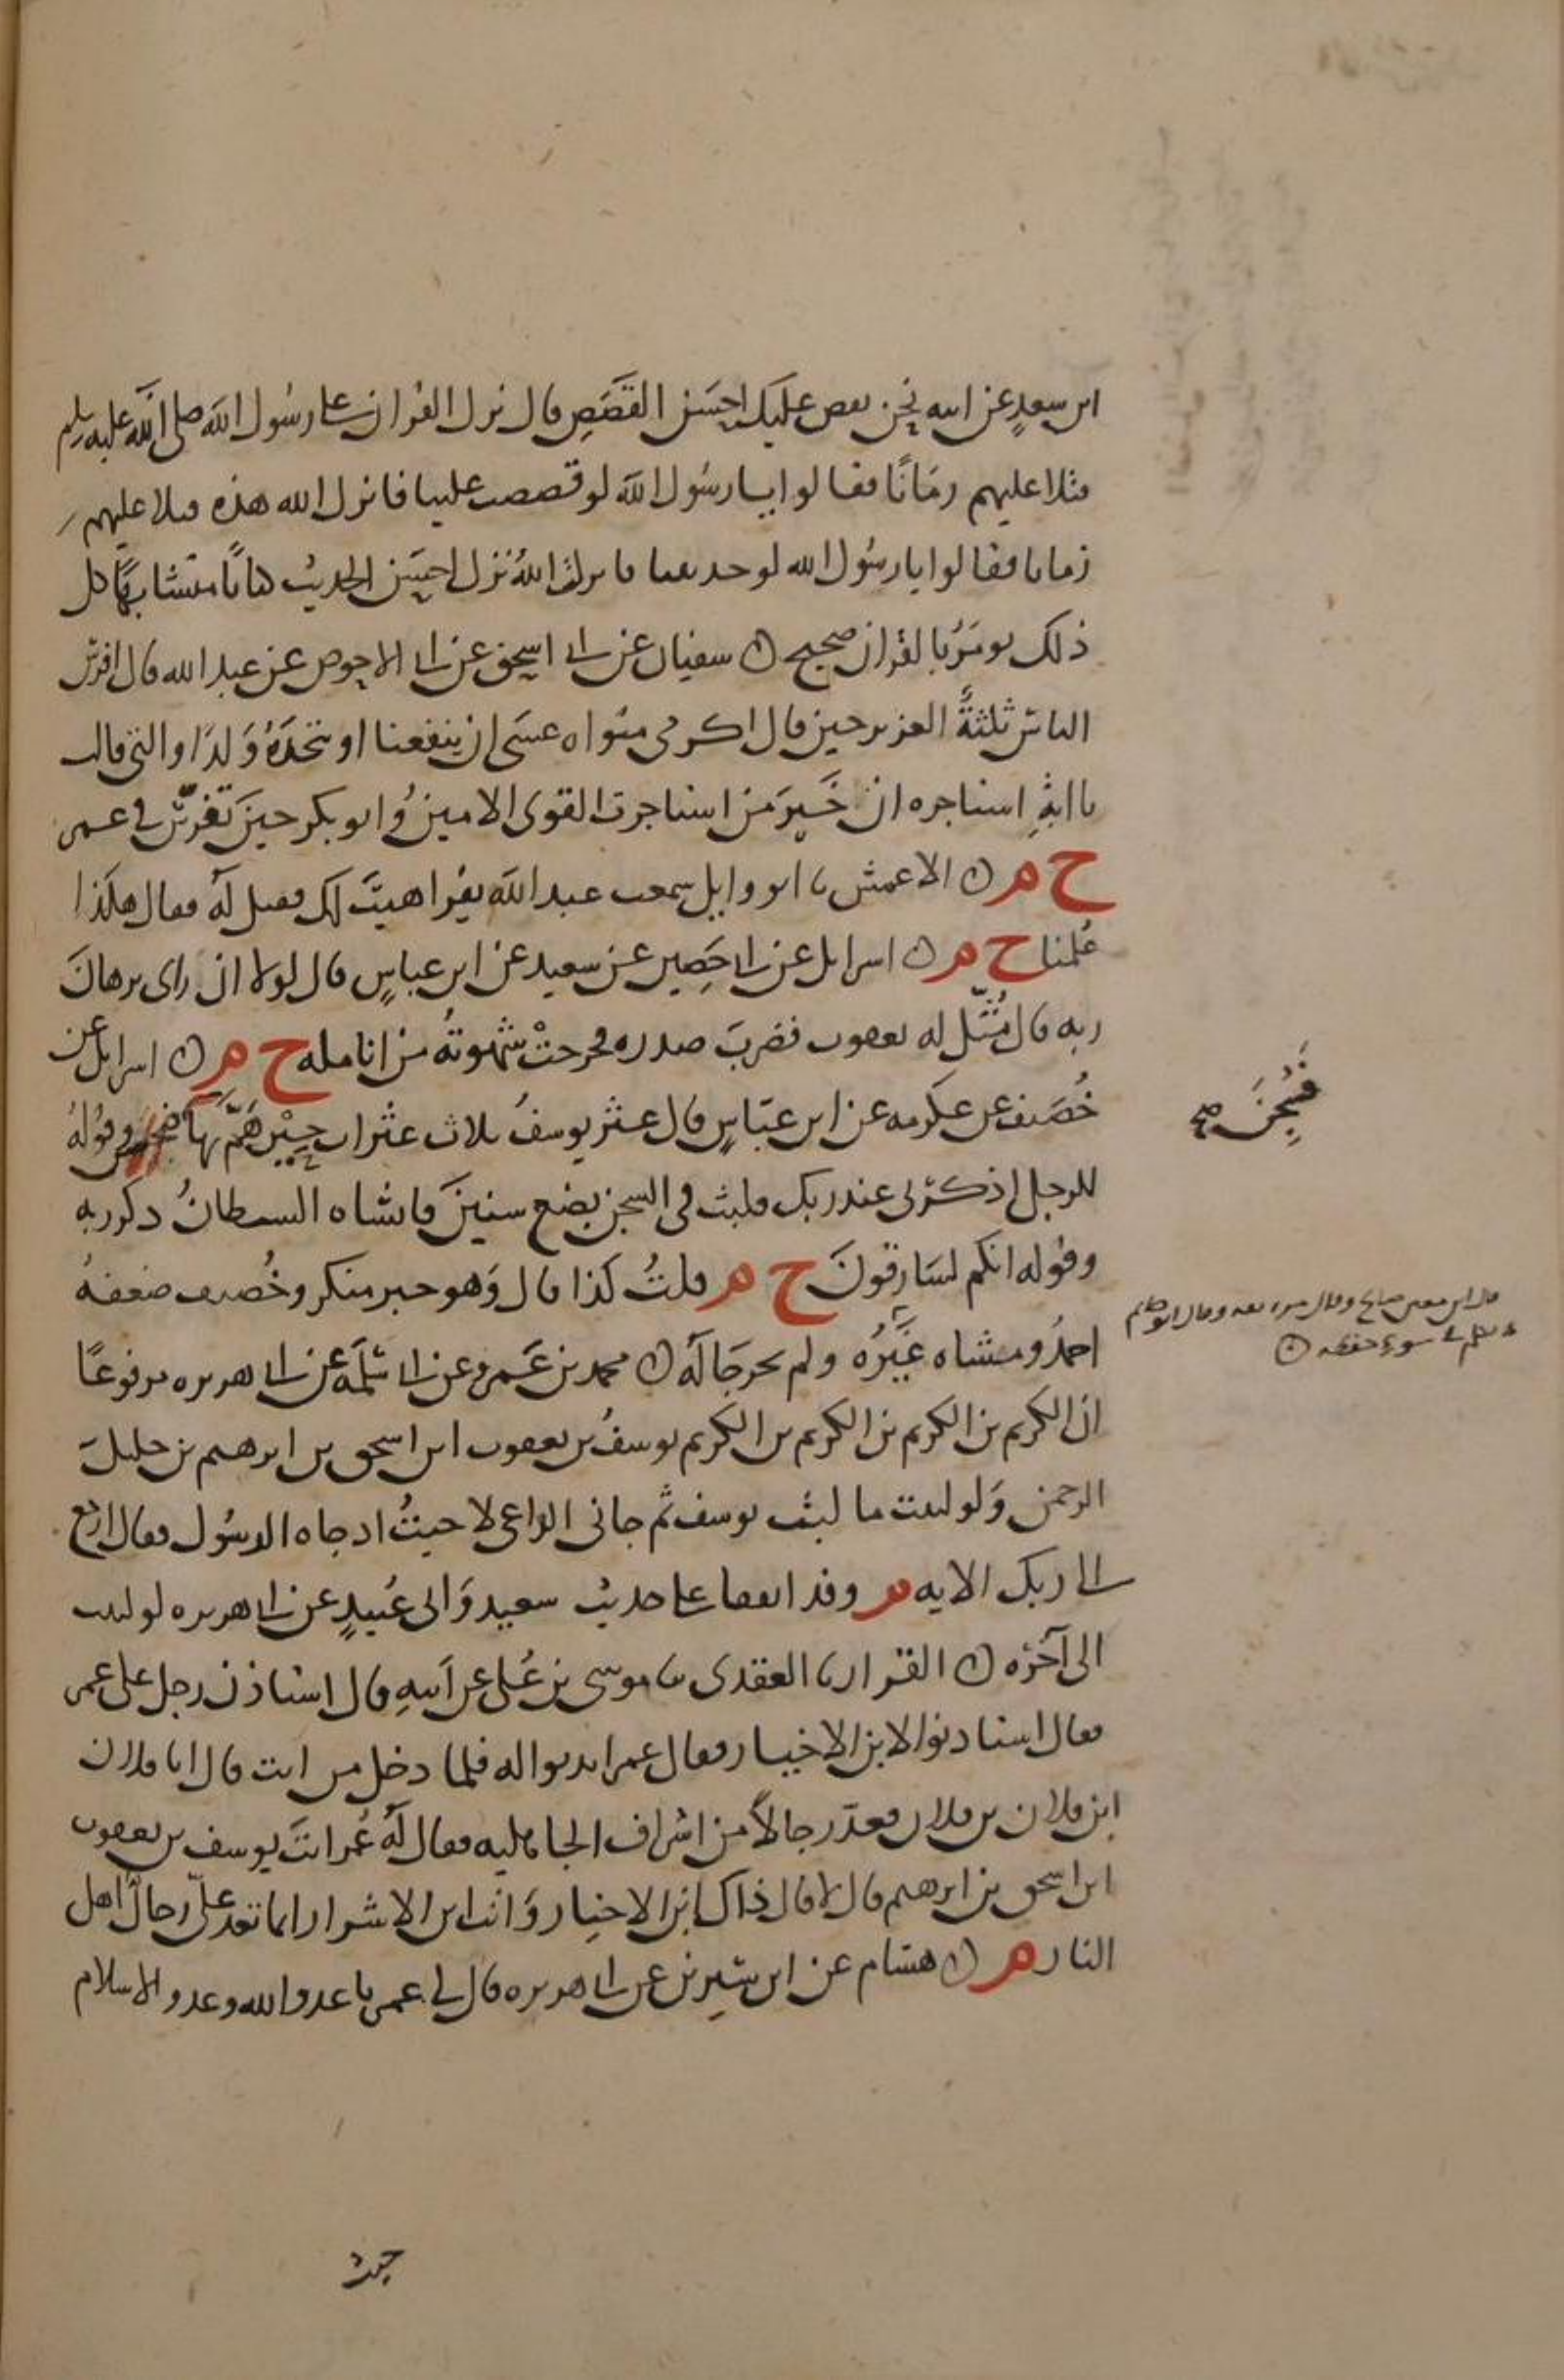 ابن سعد عن ابيه نحن نقص عليك احسن القصص قال نزل القران على رسول الله صلى الله عليه وسلم
فتلا عليهم زمانًا فقالوا يا رسول الله لو قصصت علينا فانزل الله هذه فتلا عليهم
زمانا فقالوا يا رسول الله لو حدثتنا فانزل الله نزل احسن الحديث كتابا متشابهًا كل
ذلك يومَرُ بالقران صحيح ن سفيان عن ابى اسحق عن ابى الاحوص عن عبد الله قال افرس
الناس ثلثةٌ العزيز حين قال اكرمى مثواه عسَى ان ينفعنا او نتخذهُ وَلدًا والتى قالت
يا ابةِ استاجره ان خَيرَ من استاجرت القوى الامينُ وابو بكر حينَ تفَرّسَ فى عمر
خ م ن الاعمش نا ابو وايل سمعت عبد الله يقرا هيتَ لك فقيل لهُ فقال هكذا
عُلمنا خ م ن اسرايل عن ابى حَصِين عن سعيد عن ابن عباسٍ قال لولا ان راى برهانَ
ربه قال مُثّل له يعقوب فضربَ صدره فخرجتْ شهوتهُ من انامله خ م ن اسرايل عن
خُصَيف عن عكرمه عن ابن عبّاسٍ قال عثر يوسفُ ثلاث عثرات حِيْن هَمَّ بها وقولهُ
للرجل اذكرنى عند ربك فلبث فى السجن بضع سنينَ فانساه الشيطانُ ذكر ربه
وقوله انكم لسَارقونَ خ م قلتُ كذا قال وَهو خبر منكر وخُصيف ضعفهُ
احمدُ ومشاه غَيْرُه ولم يخرجَا لهُ ن محمد بن عَمرو عن ابى سَلمَه عن ابى هريره مرفوعًا
ان الكريم بن الكريم بن الكريم بن الكريم يوسفُ بن يعقوب ابن اسحق بن ابرهيم بن خليلَ
الرحمن وَلو لبثت ما لبث يوسف ثم جانى الداعى لاجبتُ اذ جاه الرسُول فقال ارجع
الى ربك الايه م وقد اتفقا على حديث سعيد وَابى عُبيدٍ عن ابى هريره لو لبثت
الى آخرْه ن القزاز نا العقدى نا موسى بن عُلى عن اَبيهِ قال استاذن رجل على عمر
فقال استاذنوا لابن الاخيار فقال عمر ايذنوا له فلما دخل من انت قال انا فلان
ابن فلان بن فلان فعدّ رجالاً من اشراف الجاهليه فقال لهُ عُمر انتَ يوسف بن يعقوب
ابن اسحق بن ابرهيم قال لا قال ذاك ابن الاخيار وَانت ابن الاشرار انما تعد علىّ رجالَ اهل
النار م ن هشام عن ابن سيرين عن ابى هريره قال لى عمر يا عدو الله وعدو الاسلام
فَسُجِنَ صح
قال ابن معين صالح وقال مره ثقه وقال ابو حاتم
تكلم فى سوء حفظه ن